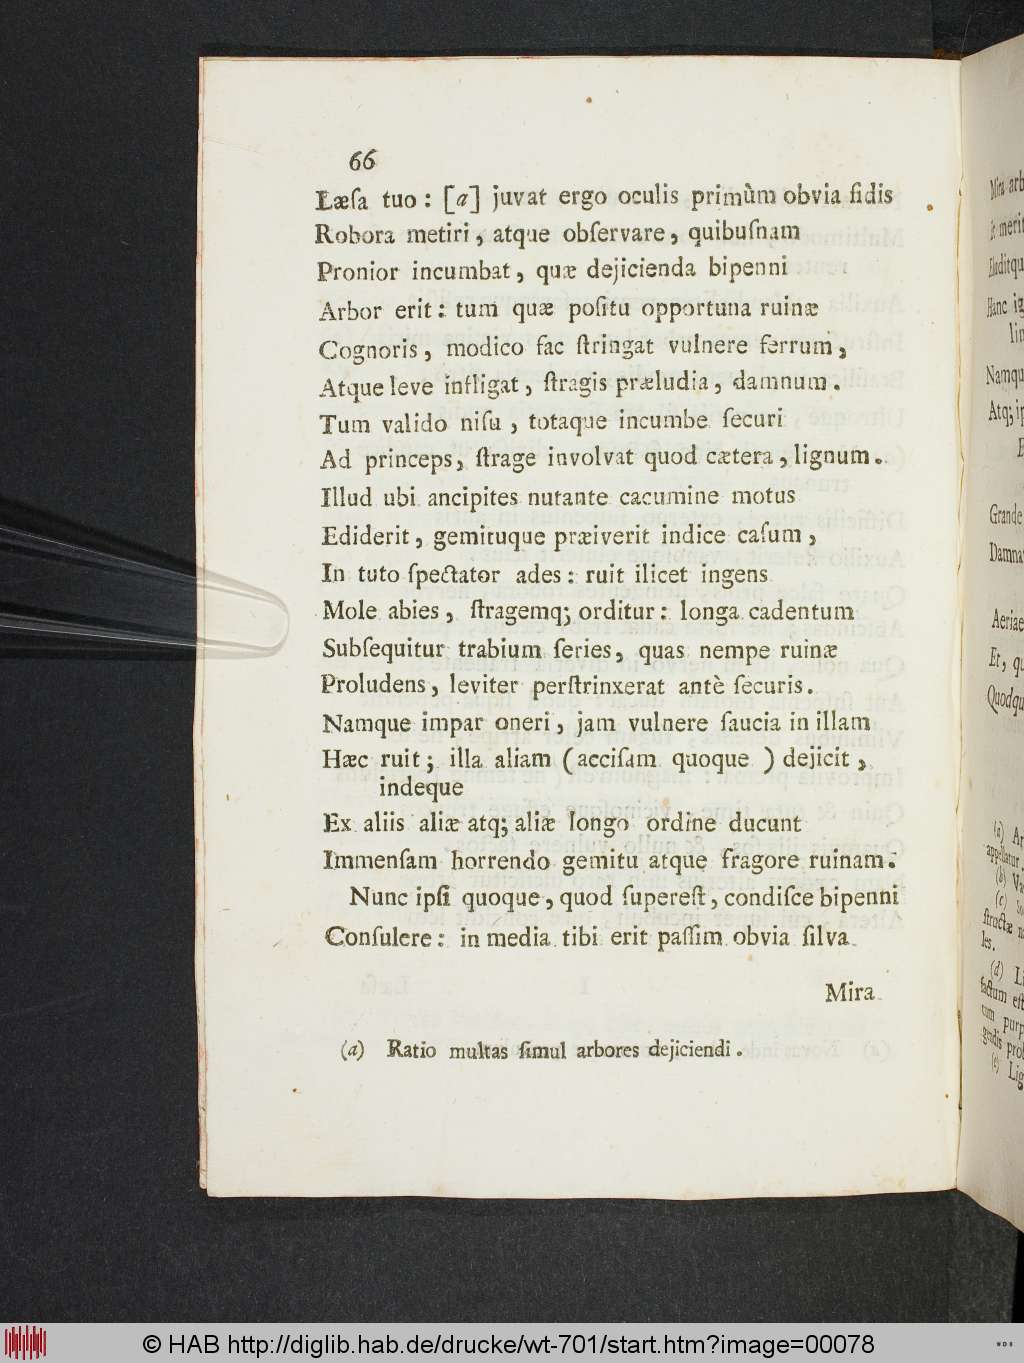 66
Læſa tuo : [a] juvat ergo oculis primùm obvia fidis
Robora metiri , atque obſervare , quibuſnam
Pronior incumbat , quæ dejicienda bipenni
Arbor erit : tum quæ poſitu opportuna ruinæ
Cognoris , modico fac ſtringat vulnere ferrum ,
Atque leve infligat , ſtragis præludia , damnum .
Tum valido niſu , totaque incumbe ſecuri
Ad princeps , ſtrage involvat quod cætera , lignum .
Illud ubi ancipites nutante cacumine motus
Ediderit , gemituque præiverit indice caſum ,
In tuto ſpectator ades : ruit ilicet ingens
Mole abies , ſtragemq; orditur : longa cadentum
Subſequitur trabium ſeries , quas nempe ruinæ
Proludens , leviter perſtrinxerat antè ſecuris .
Namque impar oneri , jam vulnere ſaucia in illam
Hæc ruit ; illa aliam ( acciſam quoque ) dejicit ,
indeque
Ex aliis aliæ atq; aliæ longo ordine ducunt
Immenſam horrendo gemitu atque fragore ruinam .
Nunc ipſi quoque , quod ſupereſt , condiſce bipenni
Conſulere : in media tibi erit paſſim obvia ſilva
Mira
(a) Ratio multas ſimul arbores dejiciendi .
Mira
Namqu
Grande
Aeriae
Et, qu
(a)
(b)
(c)
les.
(d)
(e)
© HAB http://diglib.hab.de/drucke/wt-701/start.htm?image=00078